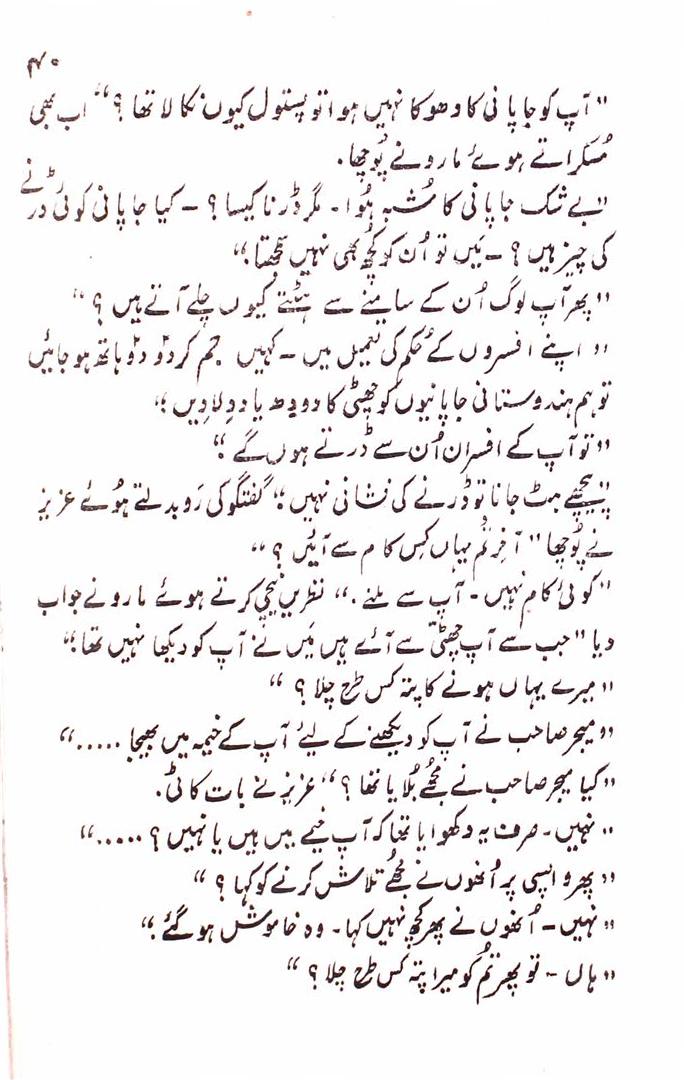 ۴۰
"آپ کو جاپانی کا دھوکا نہیں ہوا تو پستول کیوں نکالا تھا؟" اب بھی
مُسکراتے ہوئے مارو نے پُوچھا۔
"بے شک جاپانی کا شُبہ ہُوا۔ مگر ڈرنا کیسا؟ – کیا جاپانی کوئی ڈرنے
کی چیز ہیں؟ – مَیں تو اُن کو کُچھ بھی نہیں سمجھتا۔"
"پھر آپ لوگ اُن کے سامنے سے ہٹتے کیوں چلے آتے ہیں؟"
"اپنے افسروں کے حُکم کی تعمیل میں – کہیں جم کر دو دو ہاتھ ہو جائیں
تو ہم ہندوستانی جاپانیوں کو چھٹی کا دودھ یاد دلا دیں۔"
"تو آپ کے افسران اُن سے ڈرتے ہوں گے۔"
"پیچھے ہٹ جانا تو ڈرنے کی نشانی نہیں۔" گفتگو کی رَو بدلتے ہُوئے عزیز
نے پُوچھا "آخر تُم یہاں کس کام سے آئیں؟"
"کوئی کام نہیں۔ آپ سے ملنے۔" نظریں نیچی کرتے ہوئے مارو نے جواب
دیا "جب سے آپ چھٹی سے آئے ہیں مَیں نے آپ کو دیکھا نہیں تھا۔"
"میرے یہاں ہونے کا پتہ کس طرح چلا؟"
"میجر صاحب نے آپ کو دیکھنے کے لیے آپ کے خیمہ میں بھیجا ....."
"کیا میجر صاحب نے مُجھے بُلایا تھا؟" عزیز نے بات کاٹی۔
"نہیں۔ صرف یہ دکھوایا تھا کہ آپ خیمے میں ہیں یا نہیں؟ ....."
"پھر واپسی پر اُنھوں نے مُجھے تلاش کرنے کو کہا؟"
"نہیں – اُنھوں نے پھر کُچھ نہیں کہا۔ وہ خاموش ہو گئے۔"
"ہاں – تو پھر تُم کو میرا پتہ کس طرح چلا؟"